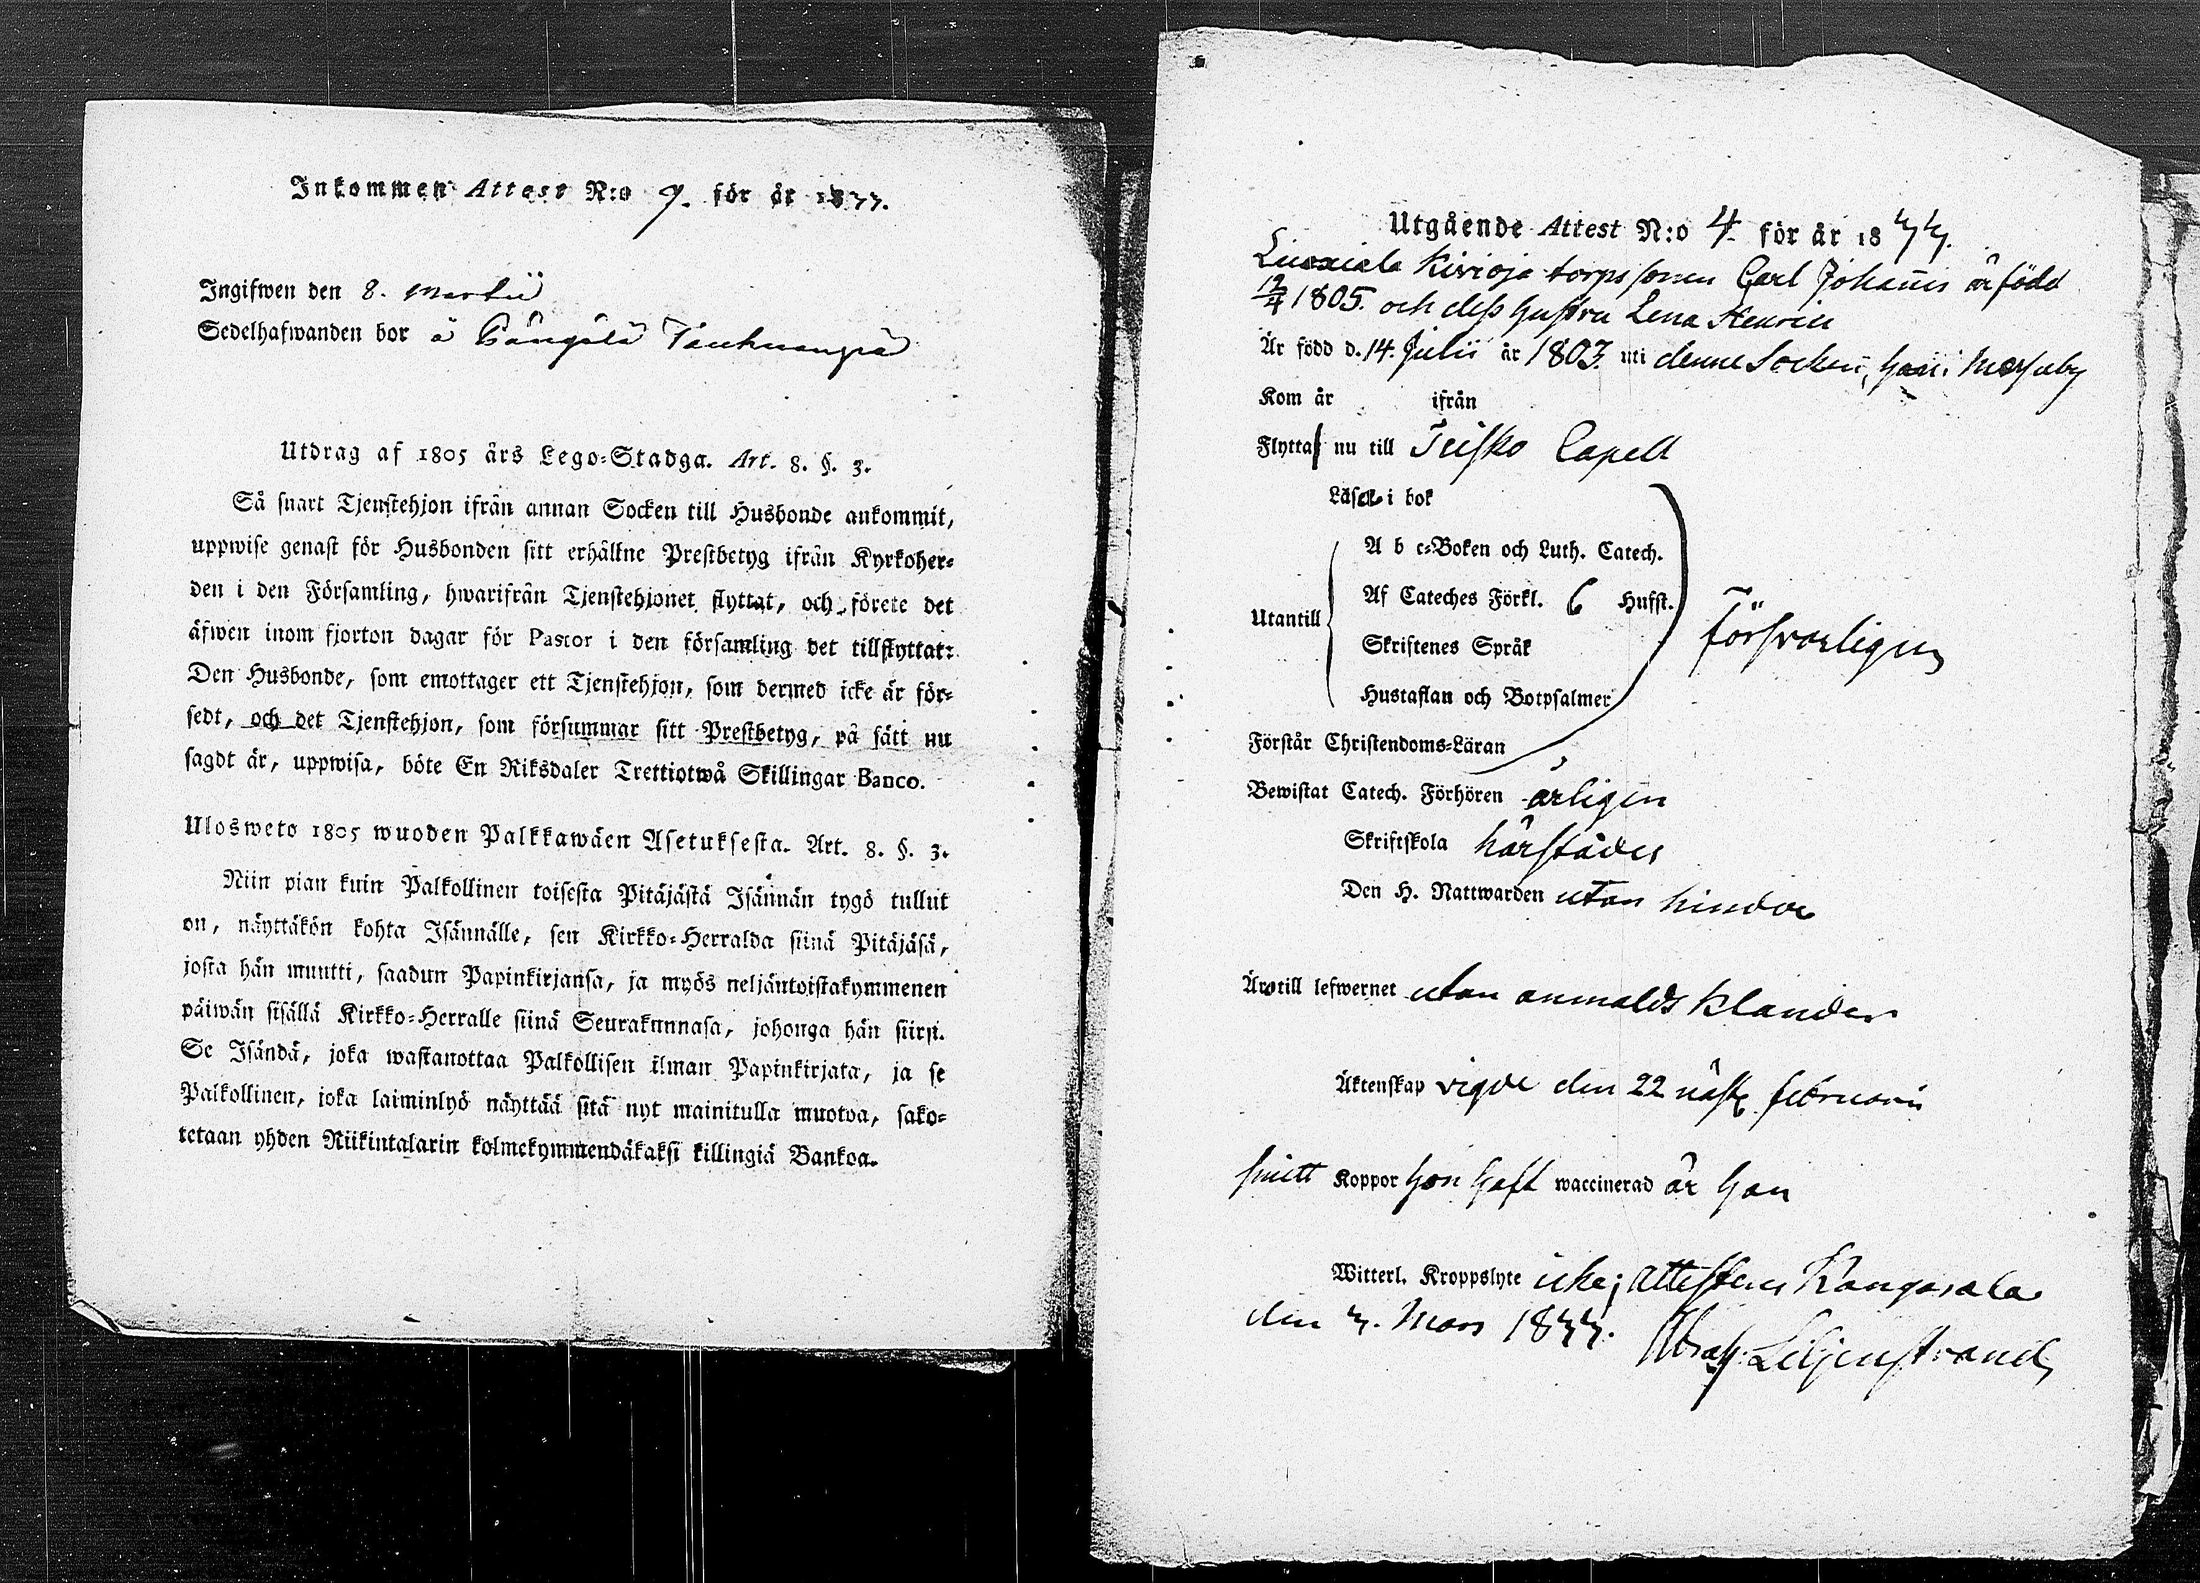 Inkommen Attest N:o 9. för år 1833.
Ingifwen den 8. Martii
Sedelhafwanden bor å
Utdrag af 1805 års Lego-Stadga. Art. 8. §. 3.
Så snart Tjenstehjon ifrån annan Socken till Husbonde ankommit,
uppwise genast för Husbonden sitt erhållne Prestbetyg ifrån Kyrkoher-
den i den Församling, hwarifrån Tjenstehjonet flyttat, och förete det
äfwen inom fjorton dagar för Pastor i den församling det tillflyttat:
Den Husbonde, som emottager ett Tjenstehjon, som dermed icke är för-
sedt, och det Tjenstehjon, som försummar sitt Prestbetyg, på sätt nu
sagdt är, uppwisa, böte En Riksdaler Trettiotwå Skillingar Banco.
Ulosweto 1805 wuoden Palkkawäen Asetuksesta. Art. 8. §. 3.
Niin pian kuin Palkollinen toisesta Pitäjästä Isännän tygö tullut
on, näyttäkön kohta Isännälle, sen Kirkko-Herralda siinä Pitäjäsä,
josta hän muutti, saadun Papinkirjansa, ja myös neljäntoistakymmenen
päiwän sisällä Kirkko-Herralle siinä Seurakunnasa, johonga hän siirsi.
Se Isändä, joka wastanottaa Palkollisen ilman Papinkirjata, ja se
Palkollinen, joka laiminlyö näyttää sitä nyt mainitulla muotoa, sako-
tetaan yhden Riikintalarin kolmekymmendäkaksi killingiä Bankoa.
Utgående Attest N:o 4. för år 1833.
Liuxiala Kivioja torpssonen Carl Johanis är född
1805. och dess hustru Lena Henrici
Är född d. 14. Julii år 1803. uti denne Socken, han i Messuby
Kom år ifrån
Flytta nu till Teisko Capell
Läsa i bok
A b c-Boken och Luth. Catech.
Af Cateches Förkl. 6 Hufst.
Utantill
Skriftenes Språk
försvarligen
Hustaflan och Botpsalmer
Förstår Christendoms-Läran
Bewistat Catech. Förhören årligen
Skriftskola härstädes
Den H. Nattwarden utan hinder
Äro till lefwernet utan anmäldt klander
Äktenskap vigde den 22 nästl. februarii
smitt Koppor hon haft waccinerad är han
Witterl. Kroppslyte icke; attesterar Kangasala
den 3. Mars 1833. Abrah. Liljenstrand